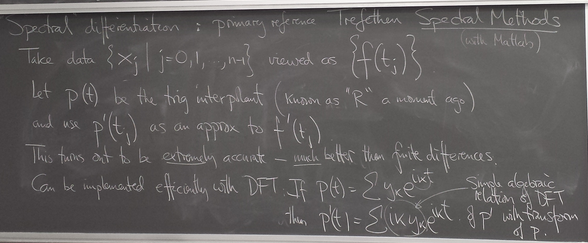 Spectral differentiation : primary reference Trefethen Spectral Methods
(with Matlab)
Take data {x_j | j=0,1,...,n-1} viewed as {f(t_j)}
Let p(t) be the trig interpolant (known as "R" a moment ago)
and use p'(t_j) as an approx to f'(t_j)
This turns out to be extremely accurate — much better than finite differences.
Can be implemented efficiently with DFT. If p(t) = Σ y_k e^{ikt}
then p'(t) = Σ (ik y_k) e^{ikt}.
Simple algebraic
relation of DFT
of p' with transform
of p.